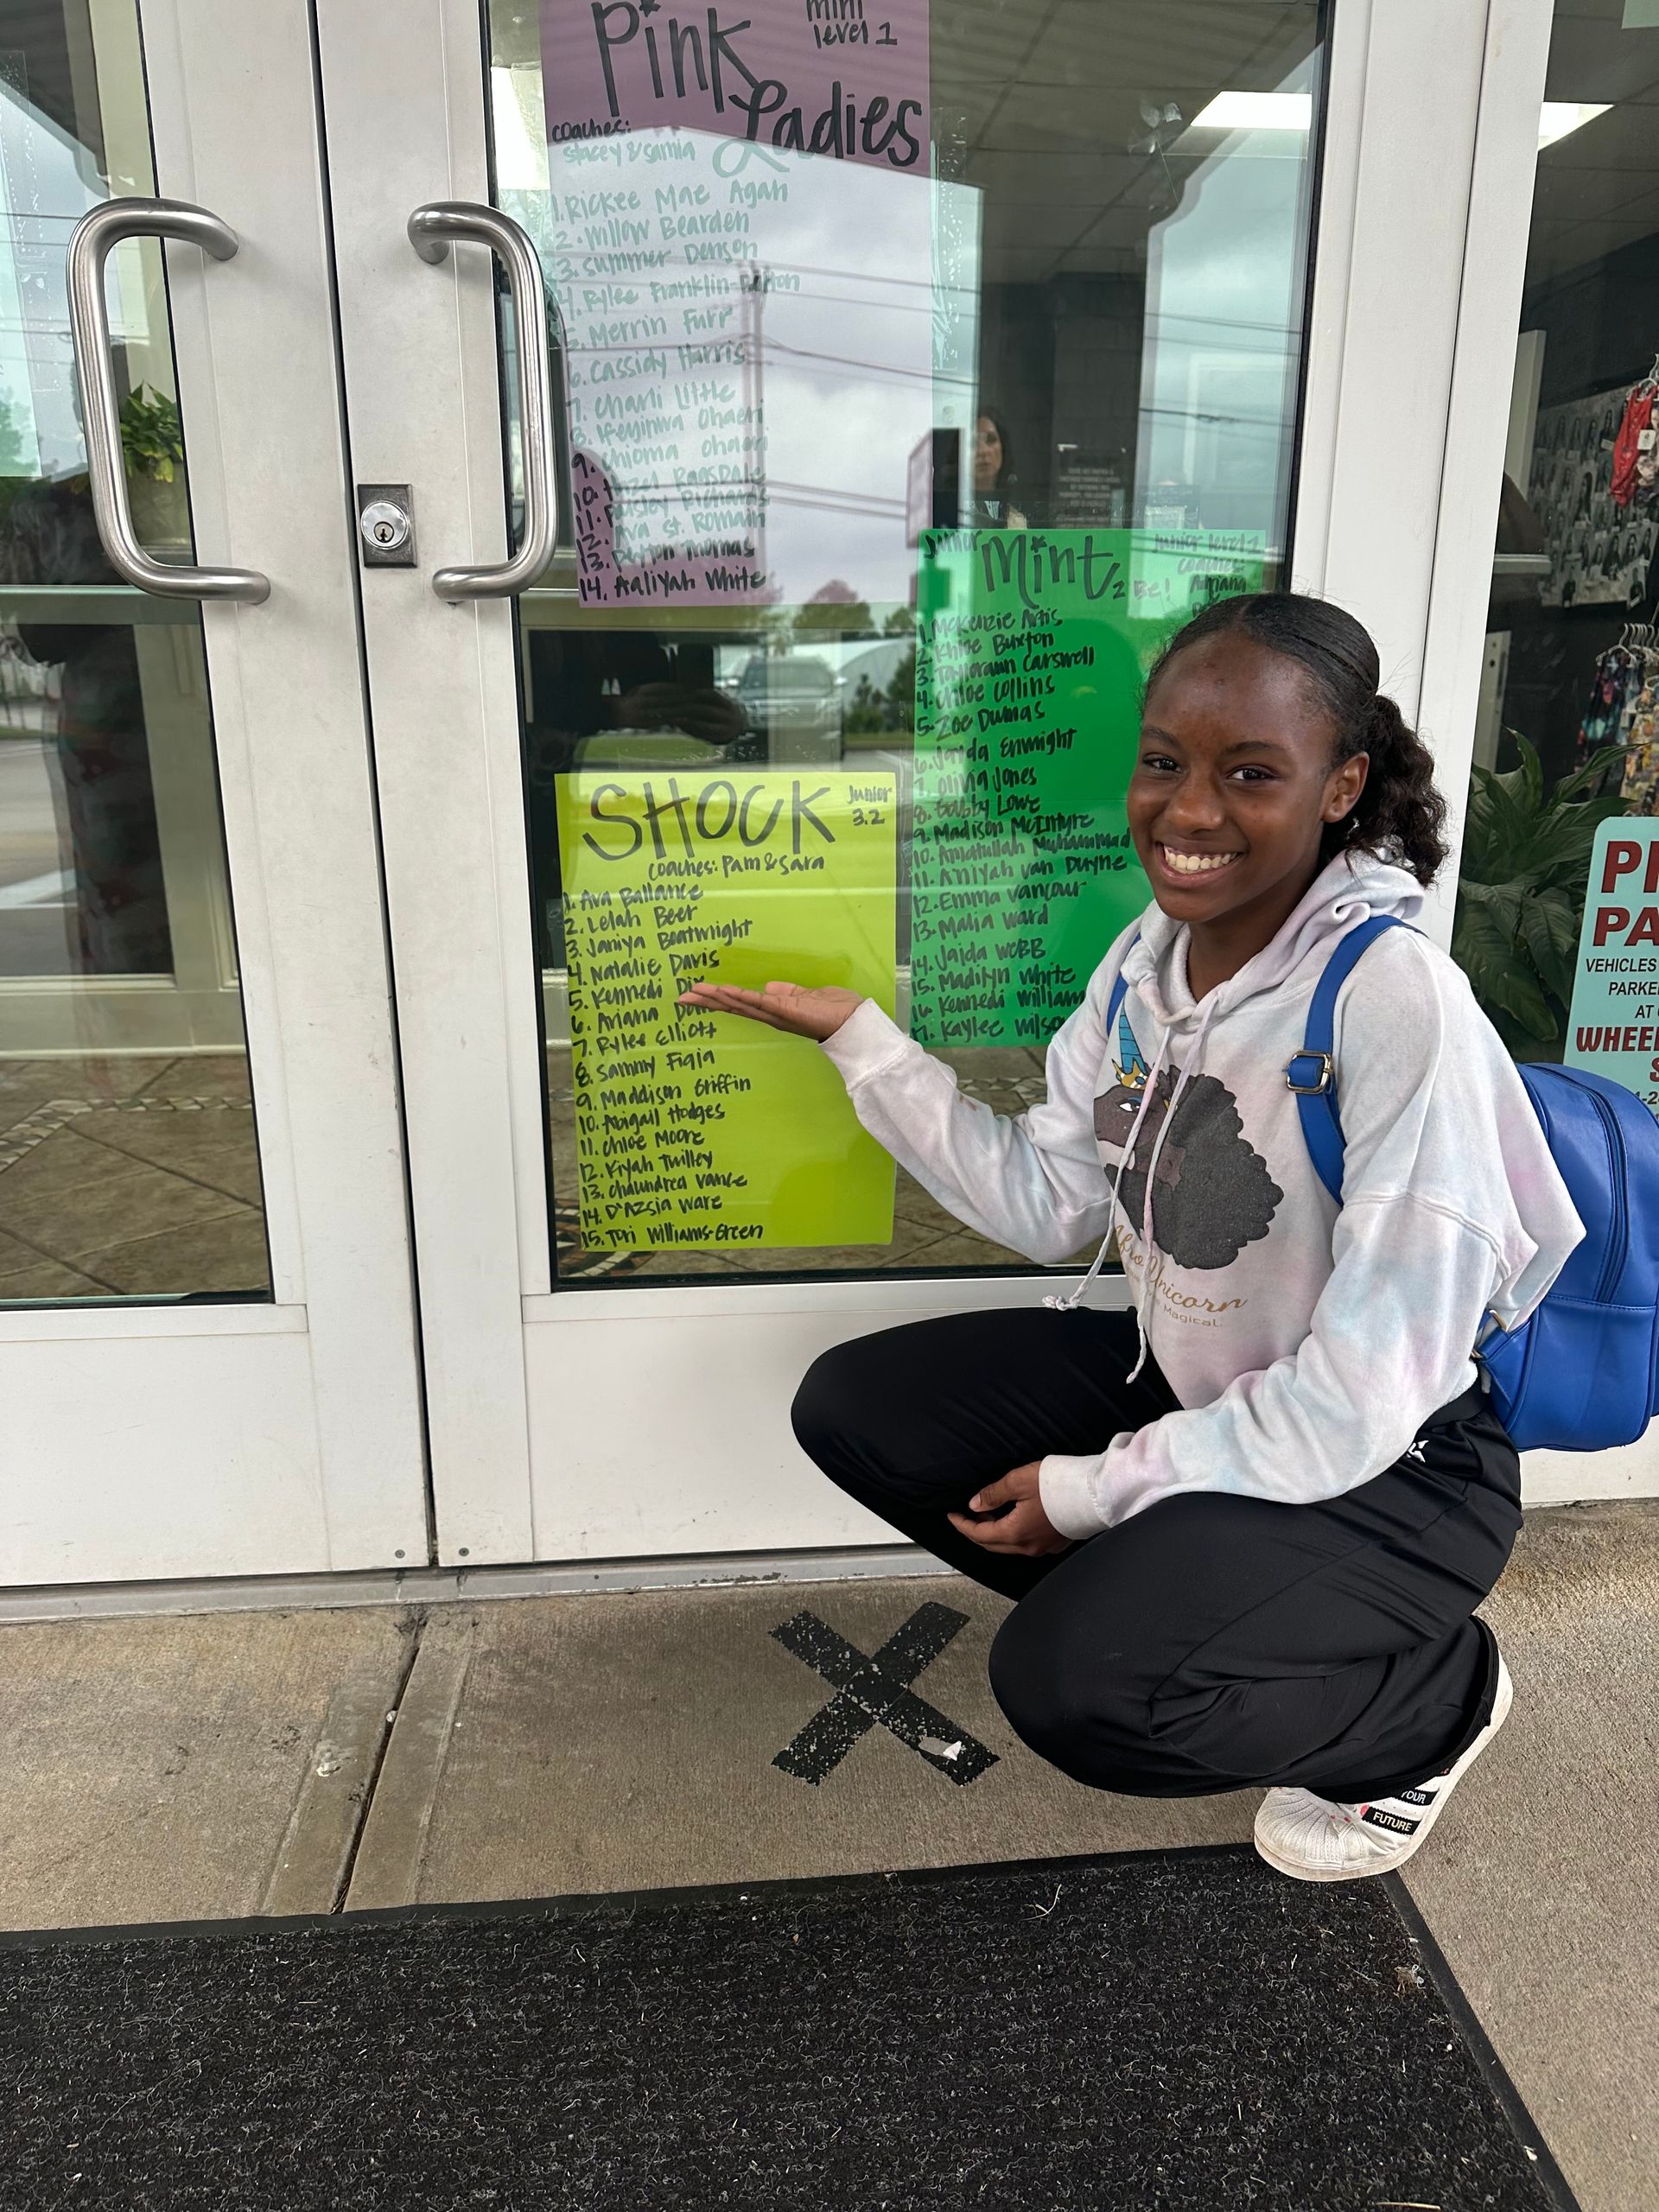 Pink
Ladies
mini
level 1
coaches:
stacey & samia
1. Rickee Mae Agan
2. Willow Bearden
3. Summer Denson
4. Rylee Franklin-
5. Merrin Furr
6. Cassidy Harris
7. Charli Little
8. Ifeyinwa Ohaeri
9. Chioma Ohaeri
10. Hazel Ragsdale
11. Paisley Richards
12. Ava St. Romain
13. Peyton Thomas
14. Aaliyah White
Junior
Mint 2 Be!
Junior level 1
coaches:
1. McKenzie Artis
2. Khloe Buxton
3. Carswell
4. Chloe Collins
5. Zoe Dumas
6. Enwright
7. Olivia Jones
8. Gabby Lowe
9. Madison McIntyre
10. Amatullah Muhammad
11. A'niyah van Duyne
12. Emma Vancour
13. Malia Ward
14. Jaida Webb
15. Madilyn White
16. Kennedi William
17. Kaylee Wilso
SHOCK
Junior
3.2
coaches: Pam & Sara
1. Ava Ballance
2. Lelah Beer
3. Janiya Boatwright
4. Natalie Davis
5. Kennedi Dix
6. Ariana
7. Rylee Elliott
8. Sammy Figia
9. Maddison Griffin
10. Abigail Hodges
11. Chloe Moore
12. Kiyah Twilley
13. Chaundrea Vance
14. D'Azsia Ware
15. Tori Williams-Green
Afro Unicorn
Magical
PA
VEHICLES
PARKE
AT
WHEE
YOUR
FUTURE